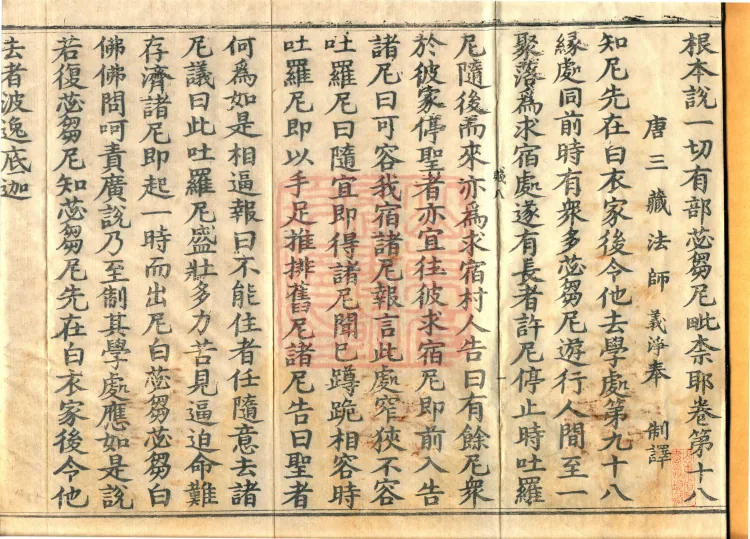 根本說一切有部苾芻尼毗柰耶卷第十八
唐三藏法師義淨奉制譯
知尼先在白衣家後令他去學處第九十八
緣處同前時有衆多苾芻尼遊行人間至一
聚落爲求宿處遂有長者許尼停止時吐羅
尼隨後而來亦爲求宿村人告曰有餘尼衆
於彼家停聖者亦宜往彼求宿尼即前入告
諸尼曰可容我宿諸尼報言此處窄狹不容
吐羅尼曰隨宜即得諸尼聞已蹲跪相容時
吐羅尼即以手足推排舊尼諸尼告曰聖者
何爲如是相逼報曰不能住者任隨意去諸
尼議曰此吐羅尼盛壯多力苦見逼迫命難
存濟諸尼即起一時而出尼白苾芻苾芻白
佛佛問呵責廣說乃至制其學處應如是說
若復苾芻尼知苾芻尼先在白衣家後令他
去者波逸底迦